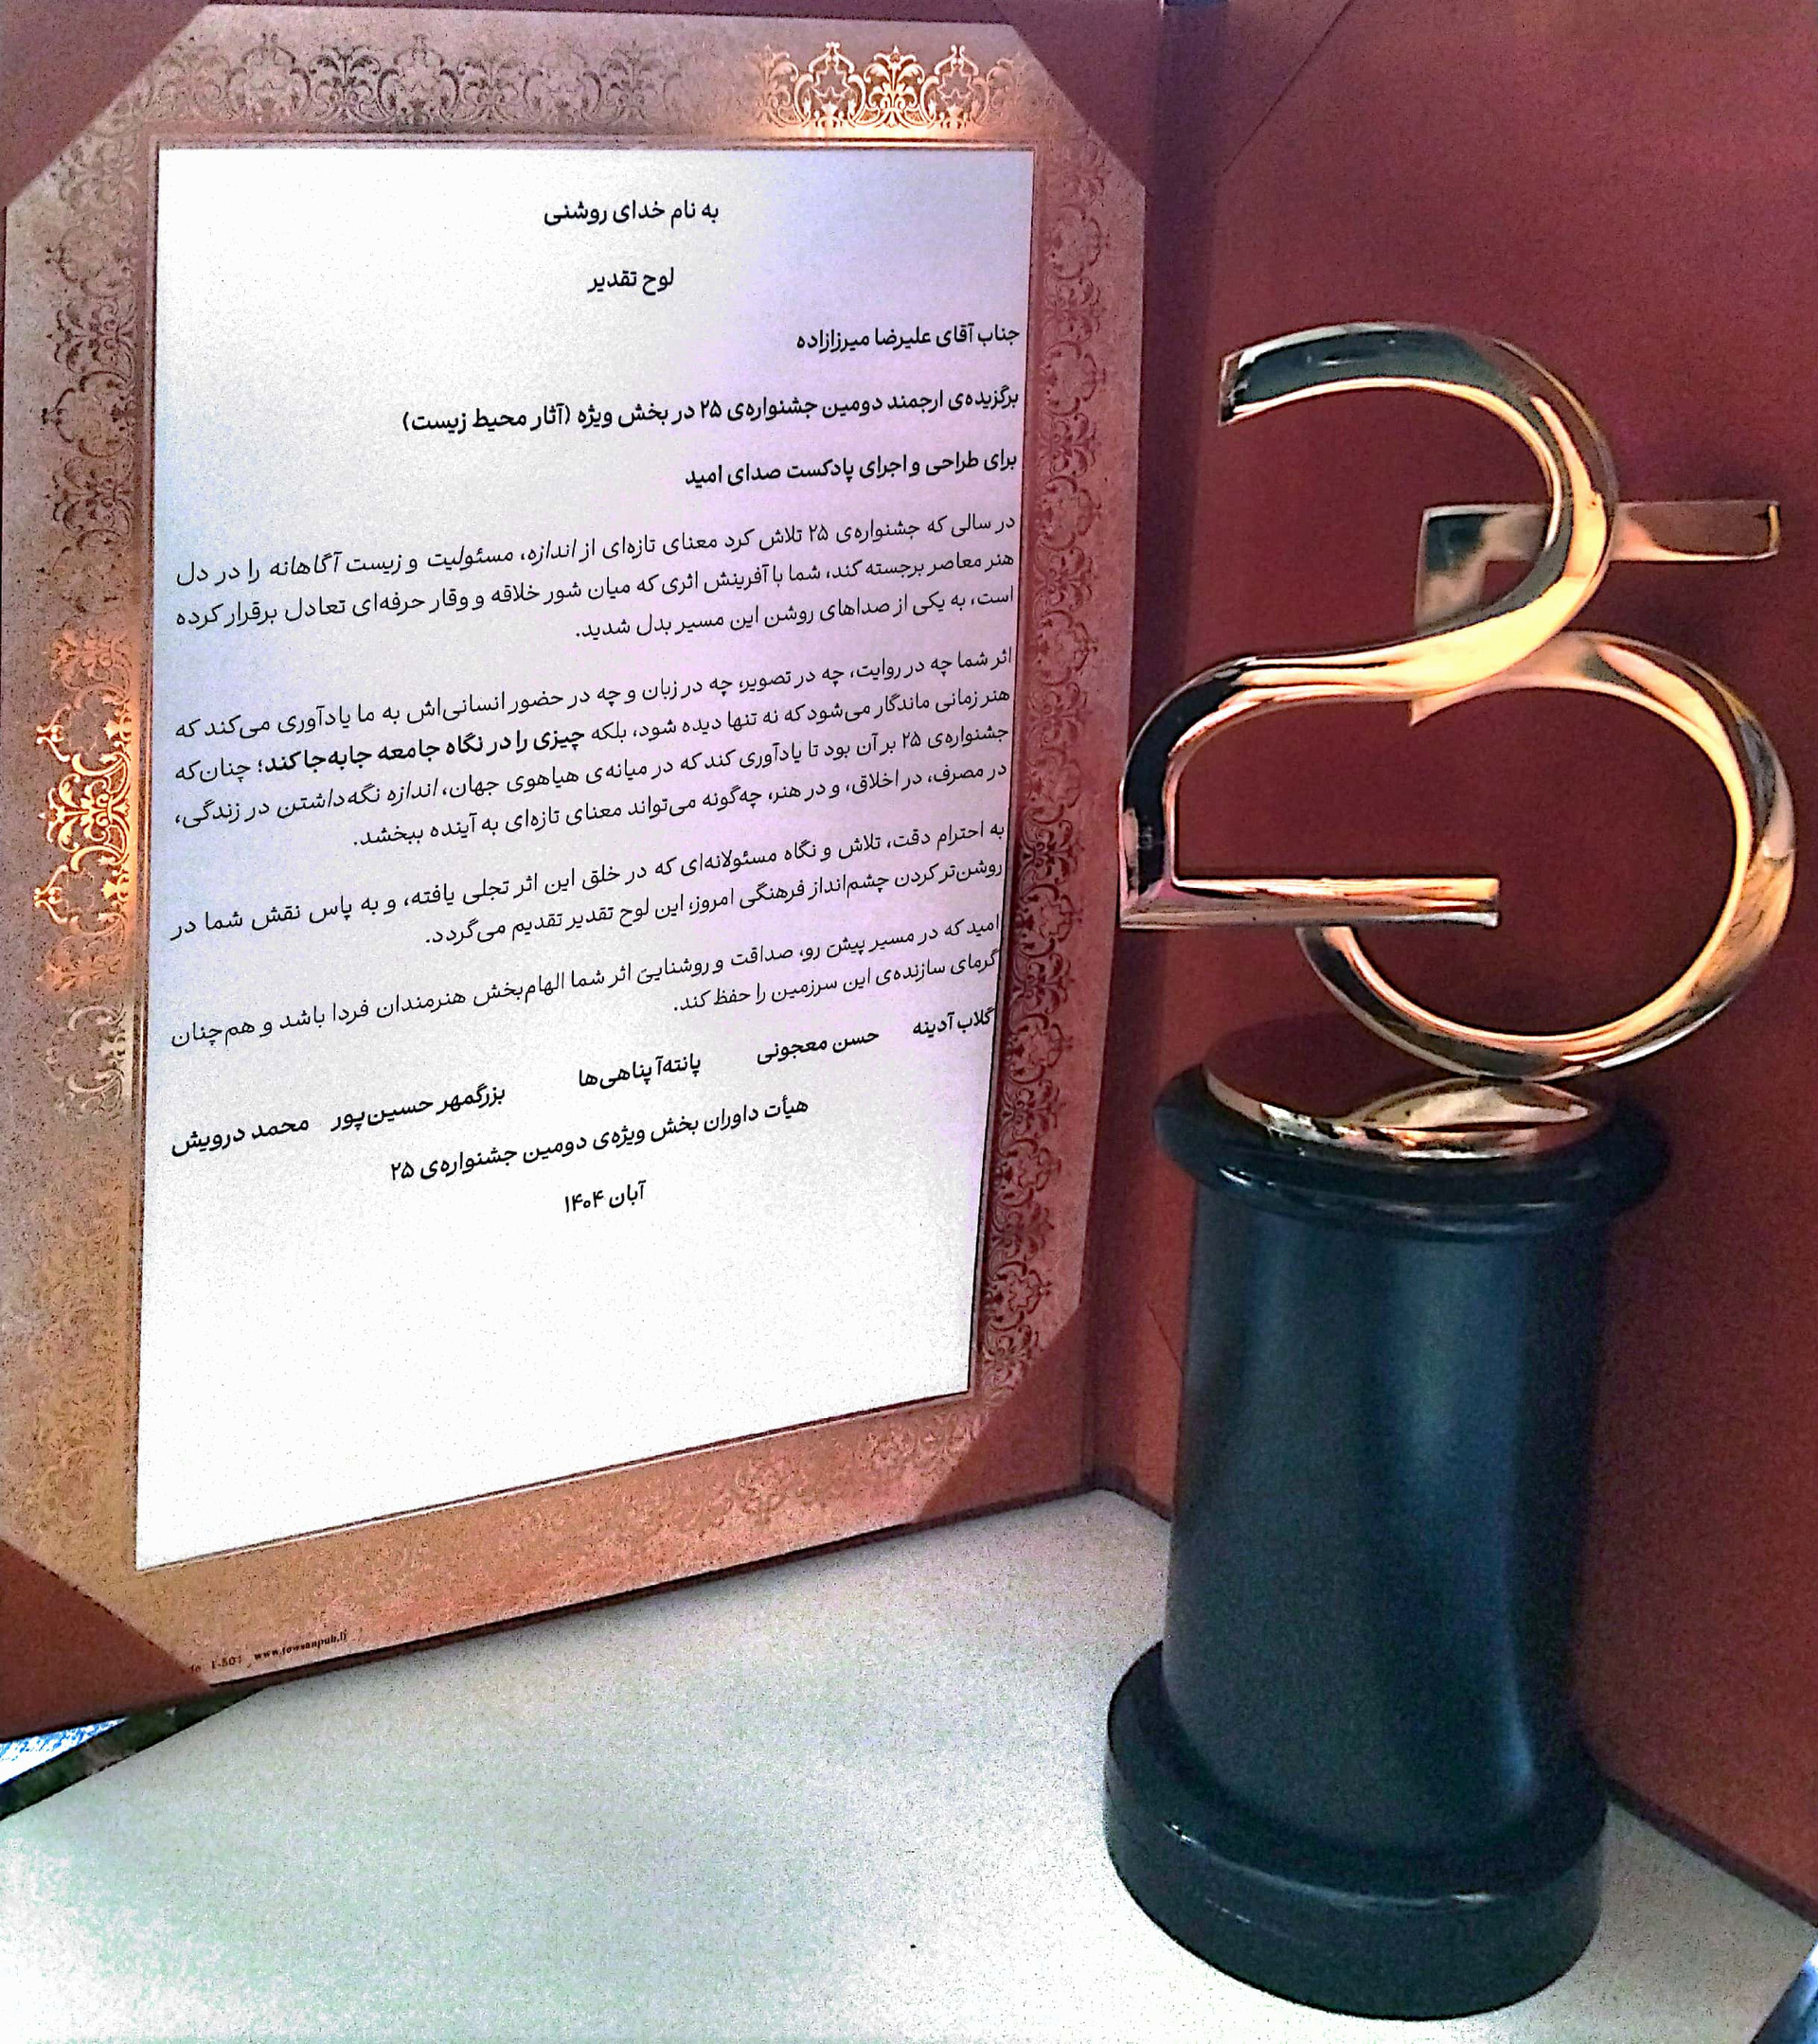 به نام خدای روشنی
لوح تقدیر
جناب آقای علیرضا میرزازاده
برگزیده‌ی ارجمند دومین جشنواره‌ی ۲۵ در بخش ویژه (آثار محیط زیست)
برای طراحی و اجرای پادکست صدای امید
در سالی که جشنواره‌ی ۲۵ تلاش کرد معنای تازه‌ای از اندازه، مسئولیت و زیست آگاهانه را در دل
هنر معاصر برجسته کند، شما با آفرینش اثری که میان شور خلاقه و وقار حرفه‌ای تعادل برقرار کرده
است، به یکی از صداهای روشن این مسیر بدل شدید.
اثر شما چه در روایت، چه در تصویر، چه در زبان و چه در حضور انسانی‌اش به ما یادآوری می‌کند که
هنر زمانی ماندگار می‌شود که نه تنها دیده شود، بلکه چیزی را در نگاه جامعه جابه‌جا کند؛ چنان‌که
جشنواره‌ی ۲۵ بر آن بود تا یادآوری کند که در میانه‌ی هیاهوی جهان، اندازه نگه‌داشتن در زندگی،
در مصرف، در اخلاق، و در هنر، چه‌گونه می‌تواند معنای تازه‌ای به آینده ببخشد.
به احترام دقت، تلاش و نگاه مسئولانه‌ای که در خلق این اثر تجلی یافته، و به پاس نقش شما در
روشن‌تر کردن چشم‌انداز فرهنگی امروز، این لوح تقدیر تقدیم می‌گردد.
امید که در مسیر پیش رو، صداقت و روشنایی اثر شما الهام‌بخش هنرمندان فردا باشد و هم‌چنان
گرمای سازنده‌ی این سرزمین را حفظ کند.
گلاب آدینه حسن معجونی پانته‌آ پناهی‌ها بزرگمهر حسین‌پور محمد درویش
هیأت داوران بخش ویژه‌ی دومین جشنواره‌ی ۲۵
آبان ۱۴۰۴
25